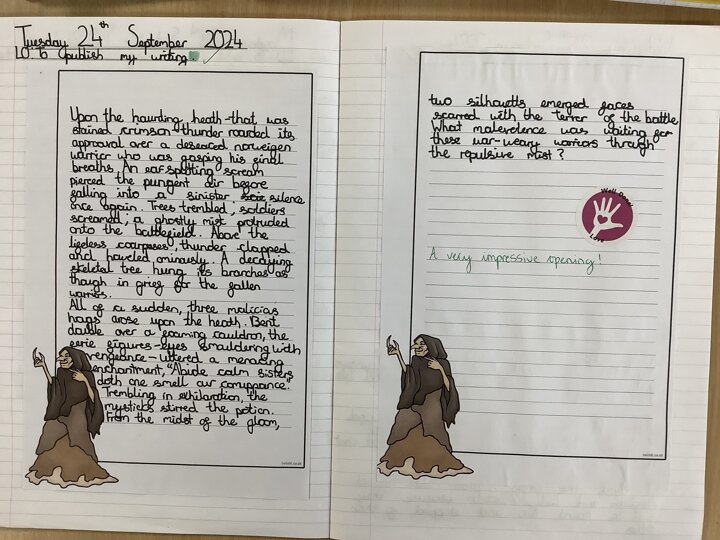 Tuesday 24th September 2024
LO: To publish my writing.
Upon the haunting heath-that was
stained crimson-thunder roared its
approval over a deseaced norweigen
warrior who was gasping his final
breaths. An ear spotting scream
pierced the pungent air before
falling into a sinister silence
once again. Trees trembled, soldiers
screamed; a ghostly mist protruded
onto the battlefield. Above the
lifeless coarpses, thunder clapped
and howled ominously. A decaying
skeletal tree hung its branches as
though in grief for the fallen
warriors.
All of a sudden, three malicias
hags arose upon the heath. Bent
double over a foaming cauldron, the
eerie figures-eyes smouldering with
vengeance-uttered a menacing
enchantment, "Abude calm sisters
doth one smell our compprance."
Trembling in exhilaration, the
mysticks stirred the potion.
From the midst of the gloom,
twinkl.co.uk
two silhouetts emerged faces
scarred with the terror of the battle.
What malevolence was waiting for
these war-weary warriors through
the repulsive mist?
Well Done!
Love
A very impressive opening!
twinkl.co.uk